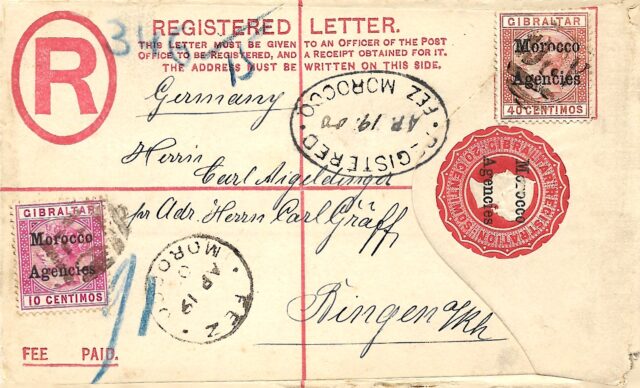 REGISTERED LETTER.
THIS LETTER MUST BE GIVEN TO AN OFFICER OF THE POST
OFFICE TO BE REGISTERED, AND A RECEIPT OBTAINED FOR IT.
THE ADDRESS MUST BE WRITTEN ON THIS SIDE.
R
GIBRALTAR
Morocco
Agencies
40 CENTIMOS
Germany
REGISTERED
AP 19 00
FEZ MOROCCO
Herrn
Carl Aigeldinger
pr Adr. Herrn Carl Gräff
Bingen a/Rh
Morocco
Agencies
GIBRALTAR
Morocco
Agencies
10 CENTIMOS
FEZ
AP 19
MOROCCO
FEE PAID.